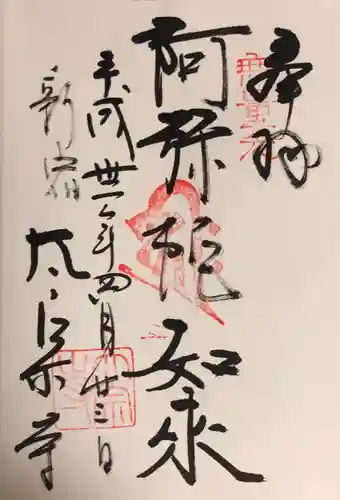 奉拝
阿弥陀如来
平成卅一年四月廿三日
新宿
太宗寺